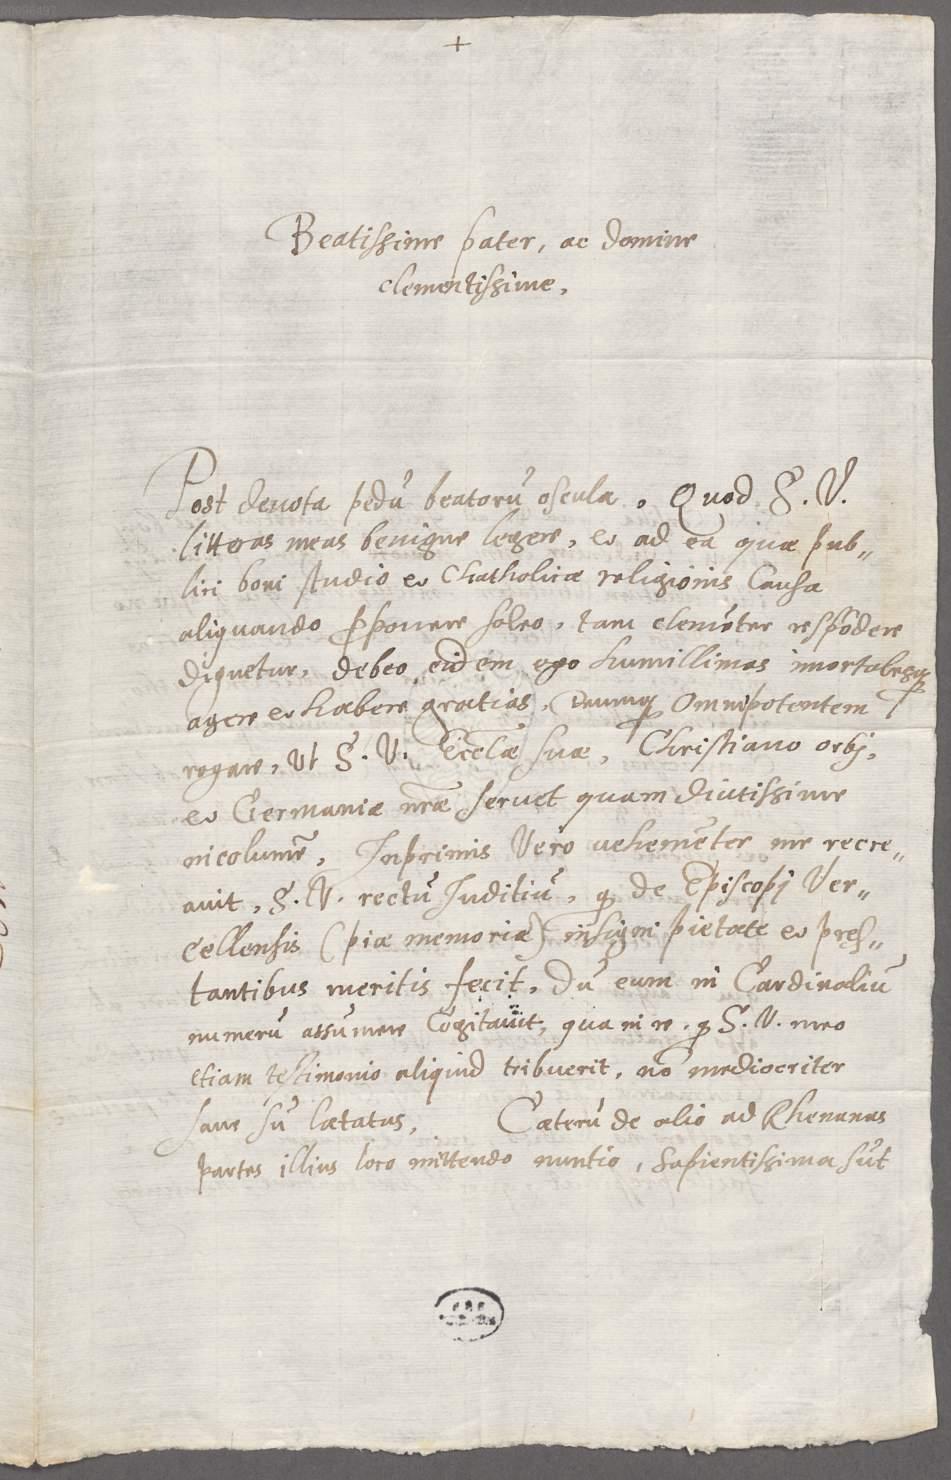 +
Beatissime pater, ac domine
clementissime,
Post deuota pedū beatorū oscula. Quod S. V.
litteras meas benigne legere, et ad ea quæ pub„
lici boni studio et Chatholicæ religionis Causa
aliquando ꝓponere soleo, tam clemēter respōdere
dignetur, debeo eidem ego humillimas imortalesqꝫ
agere et habere gratias, Deumqꝫ Omnipotentem
rogare, Ut S. V. Eccłæ suæ, Christiano orbj,
et Germaniæ nr̄æ seruet quam diutissime
incolumē, Inprimis Vero uehemēter me recre„
auit, S. V. rectū Juditiū, q̄ de Episcopj Ver„
cellensis (piæ memoriæ) insigni pietate et pręs„
tantibus meritis fecit, Dū eum in Cardinaliū
numerū assumere Cogitauit, qua in re, q̄ S. V. meo
etiam testimonio aliquid tribuerit, nō mediocriter
sane sū lætatus, Cæterū de alio ad Rhenanas
partes illius loco mittendo nuntio, Sapientissima sūt